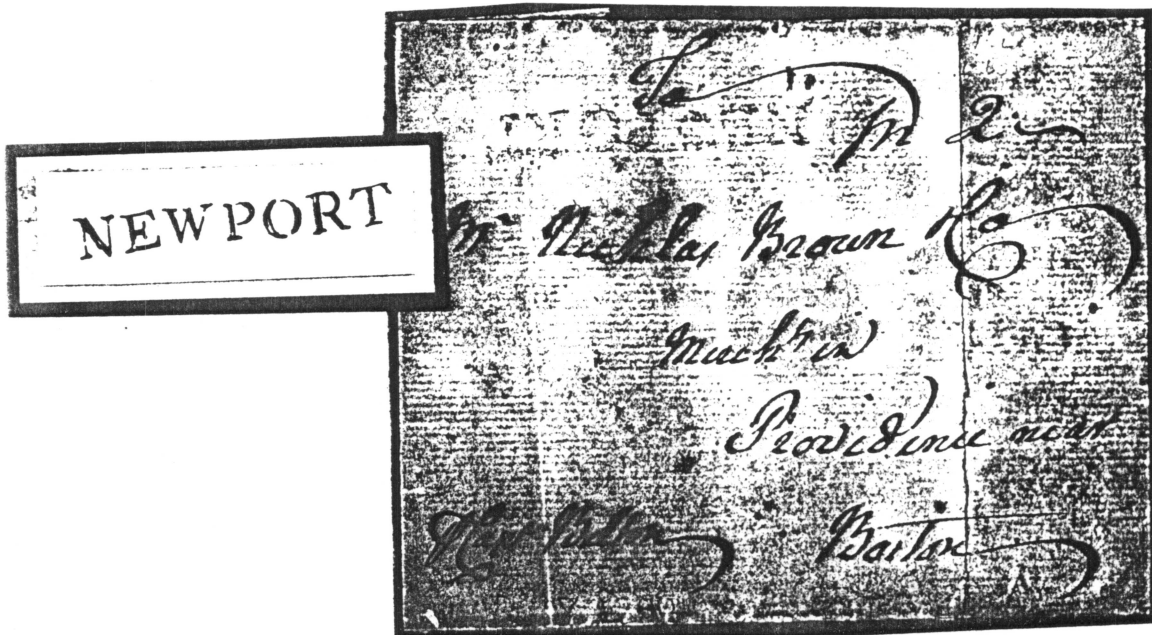 NEWPORT
To
in 2
Mr Nicholas Brown & Co
Mercht in
Providence near
Boston